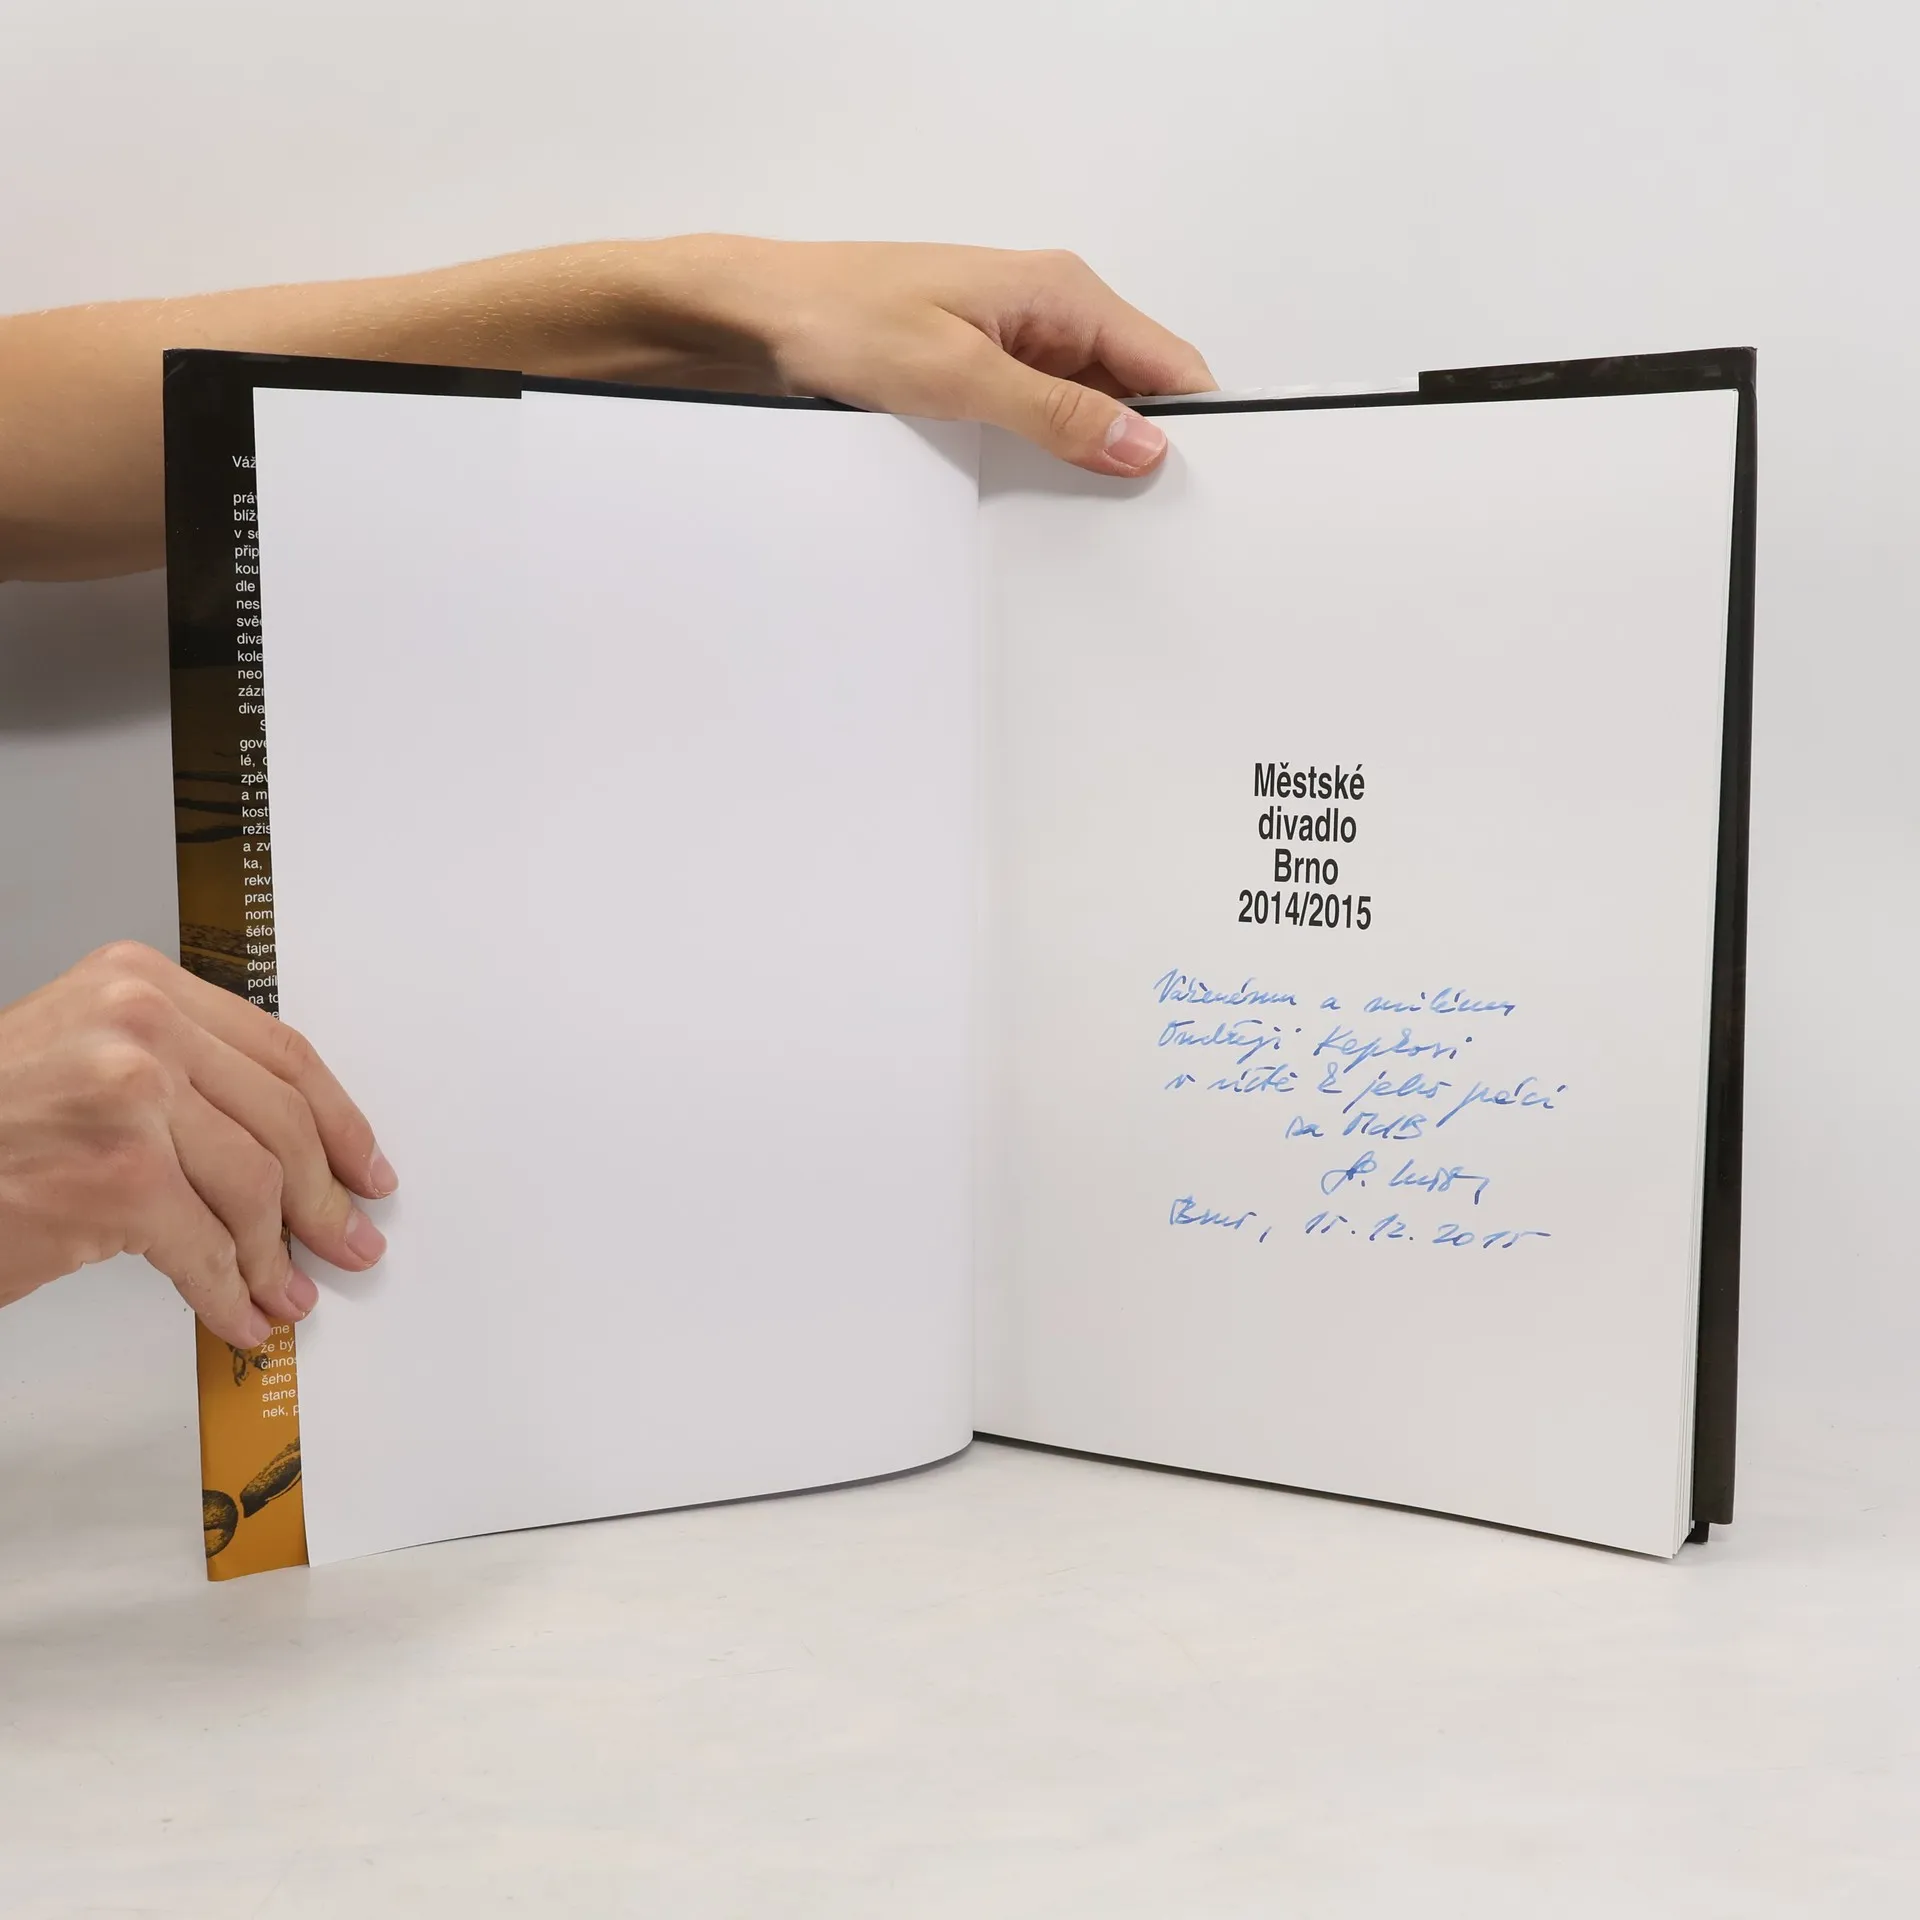 Váž
práv
blíž
v se
přip
kou
dle
nes
svě
diva
kole
neo
zázn
diva
S
gove
lé, c
zpěv
a m
kost
režis
a zv
ka,
rekv
prac
nom
šéfov
tajem
dopr
podíl
na to
me
že by
činnos
šeho
stane
nek, p
Městské
divadlo
Brno
2014/2015
Váženému a milému
Ondřeji Kepkovi
v úctě k jeho práci
na MdB
Brno, 15.12.2015